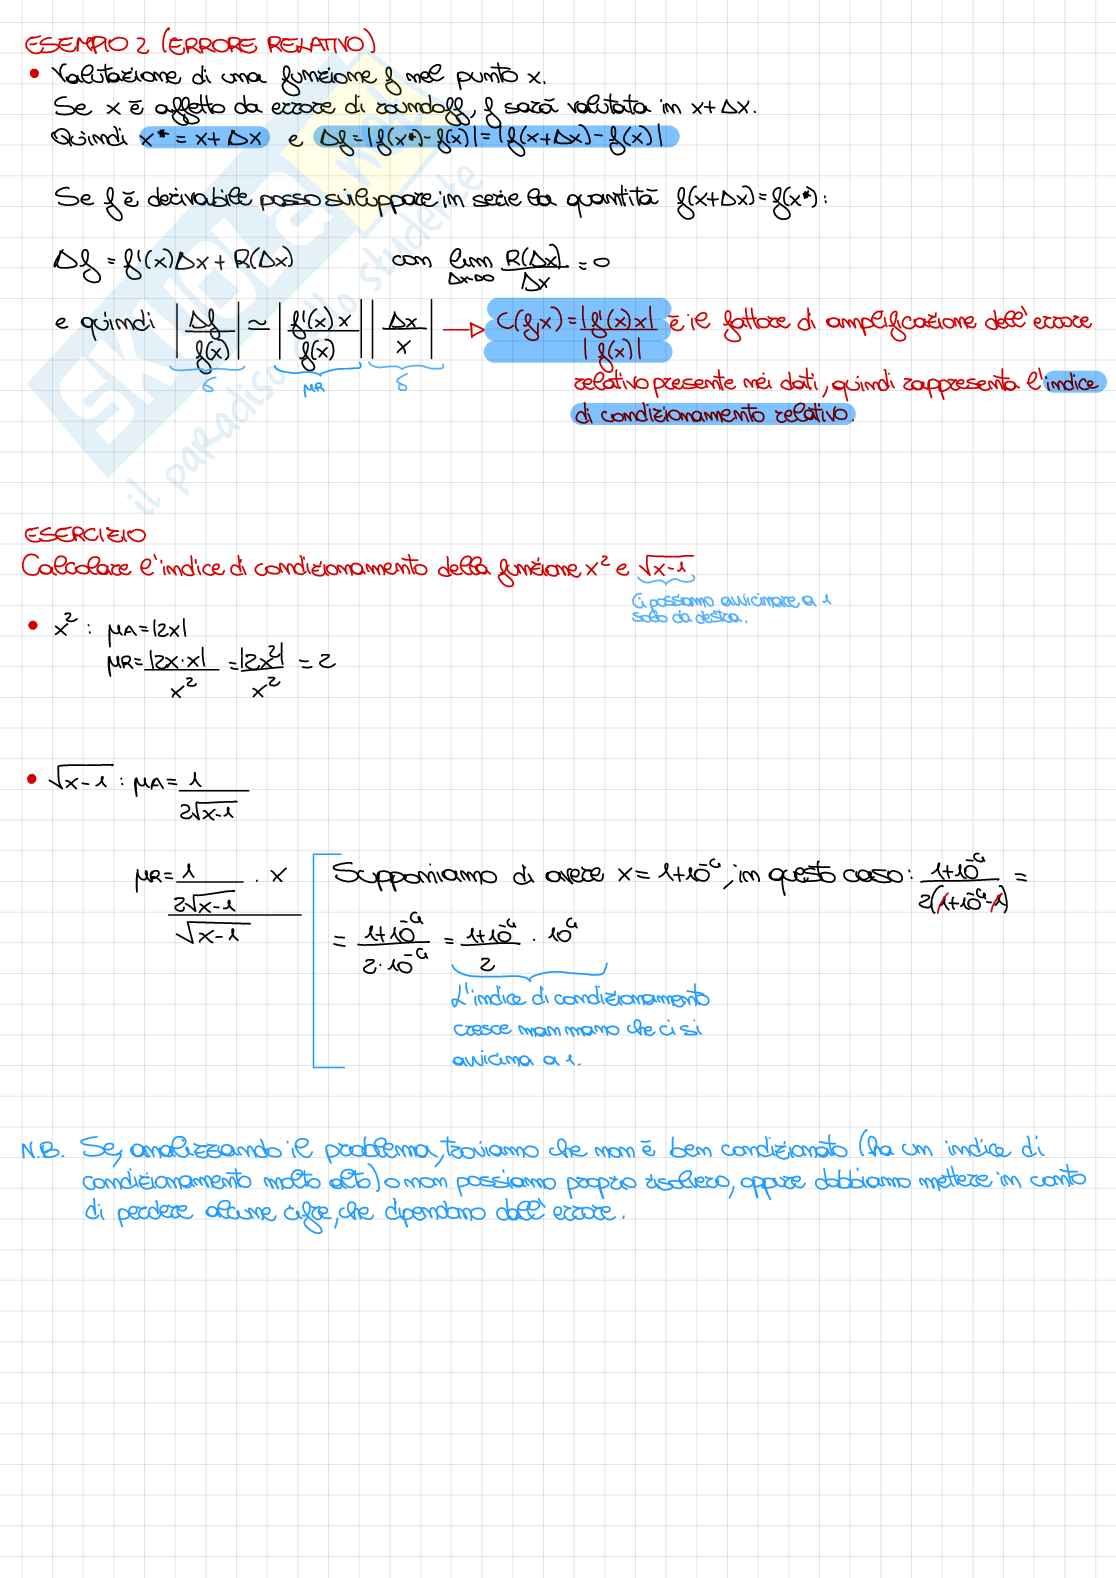 ESEMPIO 2 (ERRORE RELATIVO)
• Valutazione di una funzione f nel punto x.
Se x è affetto da errore di roundoff, f sarà valutata in x+Δx.
Quindi x* = x+Δx e Δf = |f(x*)-f(x)| = |f(x+Δx)-f(x)|
Se f è derivabile posso sviluppare in serie la quantità f(x+Δx)=f(x*):
Δf = f'(x)Δx + R(Δx) con lim Δx→0 R(Δx)/Δx = 0
e quindi |Δf/f(x)| ≃ |f'(x)x/f(x)| |Δx/x| → C(f,x) = |f'(x)x|/|f(x)| è il fattore di amplificazione dell'errore
δ μR δ relativo presente nei dati, quindi rappresenta l'indice
di condizionamento relativo.
ESERCIZIO
Calcolare l'indice di condizionamento della funzione x² e √x-1
Ci possiamo avvicinare a 1
solo da destra.
• x²: μA=|2x|
μR=|2x·x|/x² = |2x²|/x² = 2
• √x-1: μA= 1/2√x-1
μR= 1/2√x-1 · x / √x-1
Supponiamo di avere x = 1+10⁻ᵃ, in questo caso: 1+10⁻ᵃ/2(1+10⁻ᵃ-1) =
= 1+10⁻ᵃ/2·10⁻ᵃ = 1+10⁻ᵃ/2 · 10ᵃ
L'indice di condizionamento
cresce man mano che ci si
avvicina a 1.
N.B. Se, analizzando il problema, troviamo che non è ben condizionato (ha un indice di
condizionamento molto alto) o non possiamo proprio risolverlo, oppure dobbiamo mettere in conto
di perdere alcune cifre, che dipendono dall'errore.
SKUOLA.net
il paradiso dello studente